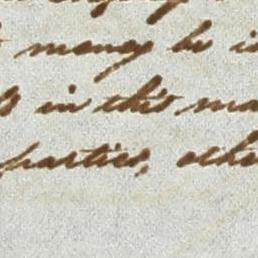 money be i
in this ma
parties, othe